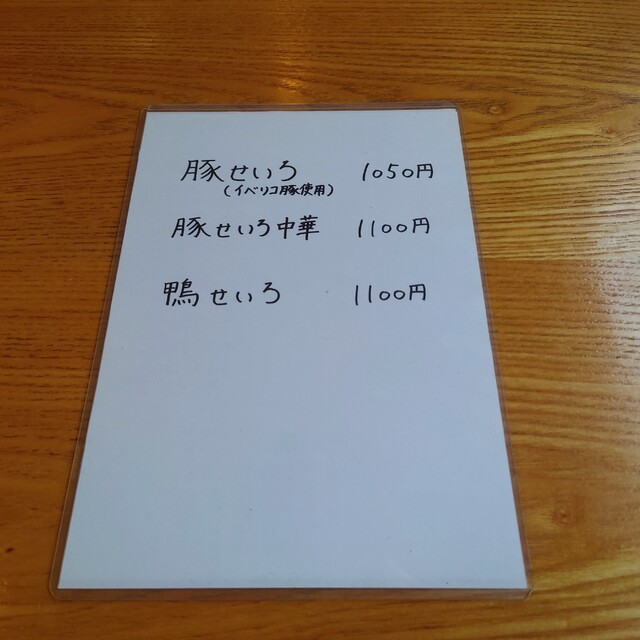 豚せいろ 1050円
(イベリコ豚使用)
豚せいろ中華 1100円
鴨せいろ 1100円